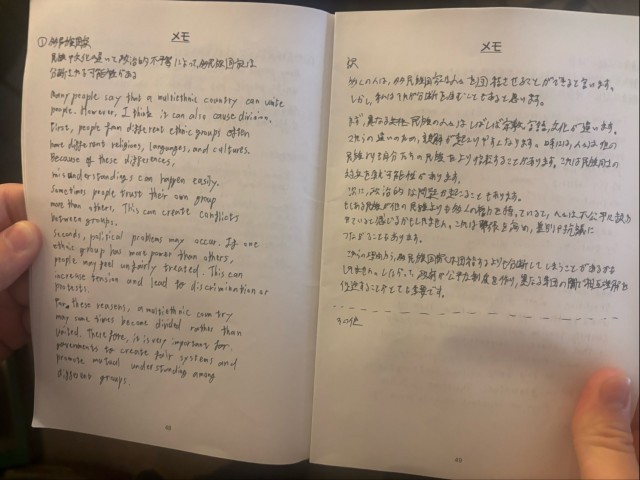 メモ
① 多民族国家
民族や文化の違いで政治的不平等によって、多民族国家は
分断される可能性がある
Many people say that a multiethnic country can unite
people. However, I think it can also cause division.
First, people from different ethnic groups often
have different religions, languages, and cultures.
Because of these differences,
misunderstandings can happen easily.
Sometimes people trust their own group
more than others. This can create conflicts
between groups.
Second, political problems may occur. If one
ethnic group has more power than others,
people may feel unfairly treated. This can
increase tension and lead to discrimination or
protests.
For these reasons, a multiethnic country
may some times become divided rather than
united. Therefore, it is very important for
governments to create fair systems and
promote mutual understanding among
different groups.
48
メモ
訳
多くの人は、多民族国家は人々を団結させることができると言います。
しかし、私はそれが分断を生むこともあると思います。
まず、異なる民族の人々はしばしば宗教、言語、文化が違います。
これらの違いのため、誤解が起こりやすくなります。時には、人々は他の
民族よりも自分たちの民族をより信頼することがあります。これは民族同士の
対立を生む可能性があります。
次に、政治的な問題が起こることもあります。
もしある民族が他の民族よりも多くの権力を持っていると、人々は不公平に扱わ
れていると感じるかもしれません。これは緊張を高め、差別や抗議に
つながることもあります。
これらの理由から、多民族国家は団結するよりも分断してしまうことがあるかも
しれません。したがって、政府が公平な制度を作り、異なる集団の間に相互理解を
促進することがとても重要です。
その他
49